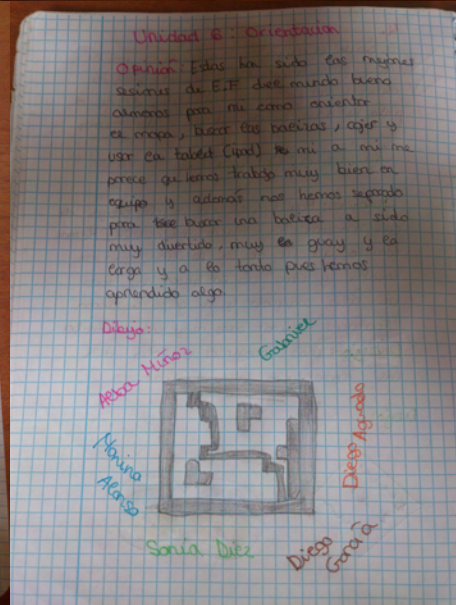 Unidad 6: Orientación
Opinión: Estas han sido las mejores
sesiones de E.F del mundo bueno
almenos para mi como orientar
el mapa, buscar las balizas, cojer y
usar la tablet (ipad) a mi me
parece que hemos trabajo muy bien en
equipo y además nos hemos separado
para buscar una baliza a sido
muy divertido, muy guay y la
larga y a lo tonto pues hemos
aprendido algo.
Dibujo:
Gabriel
Alba Muñoz
Diego Aguado
Alonso
Sonia Diez
Diego García